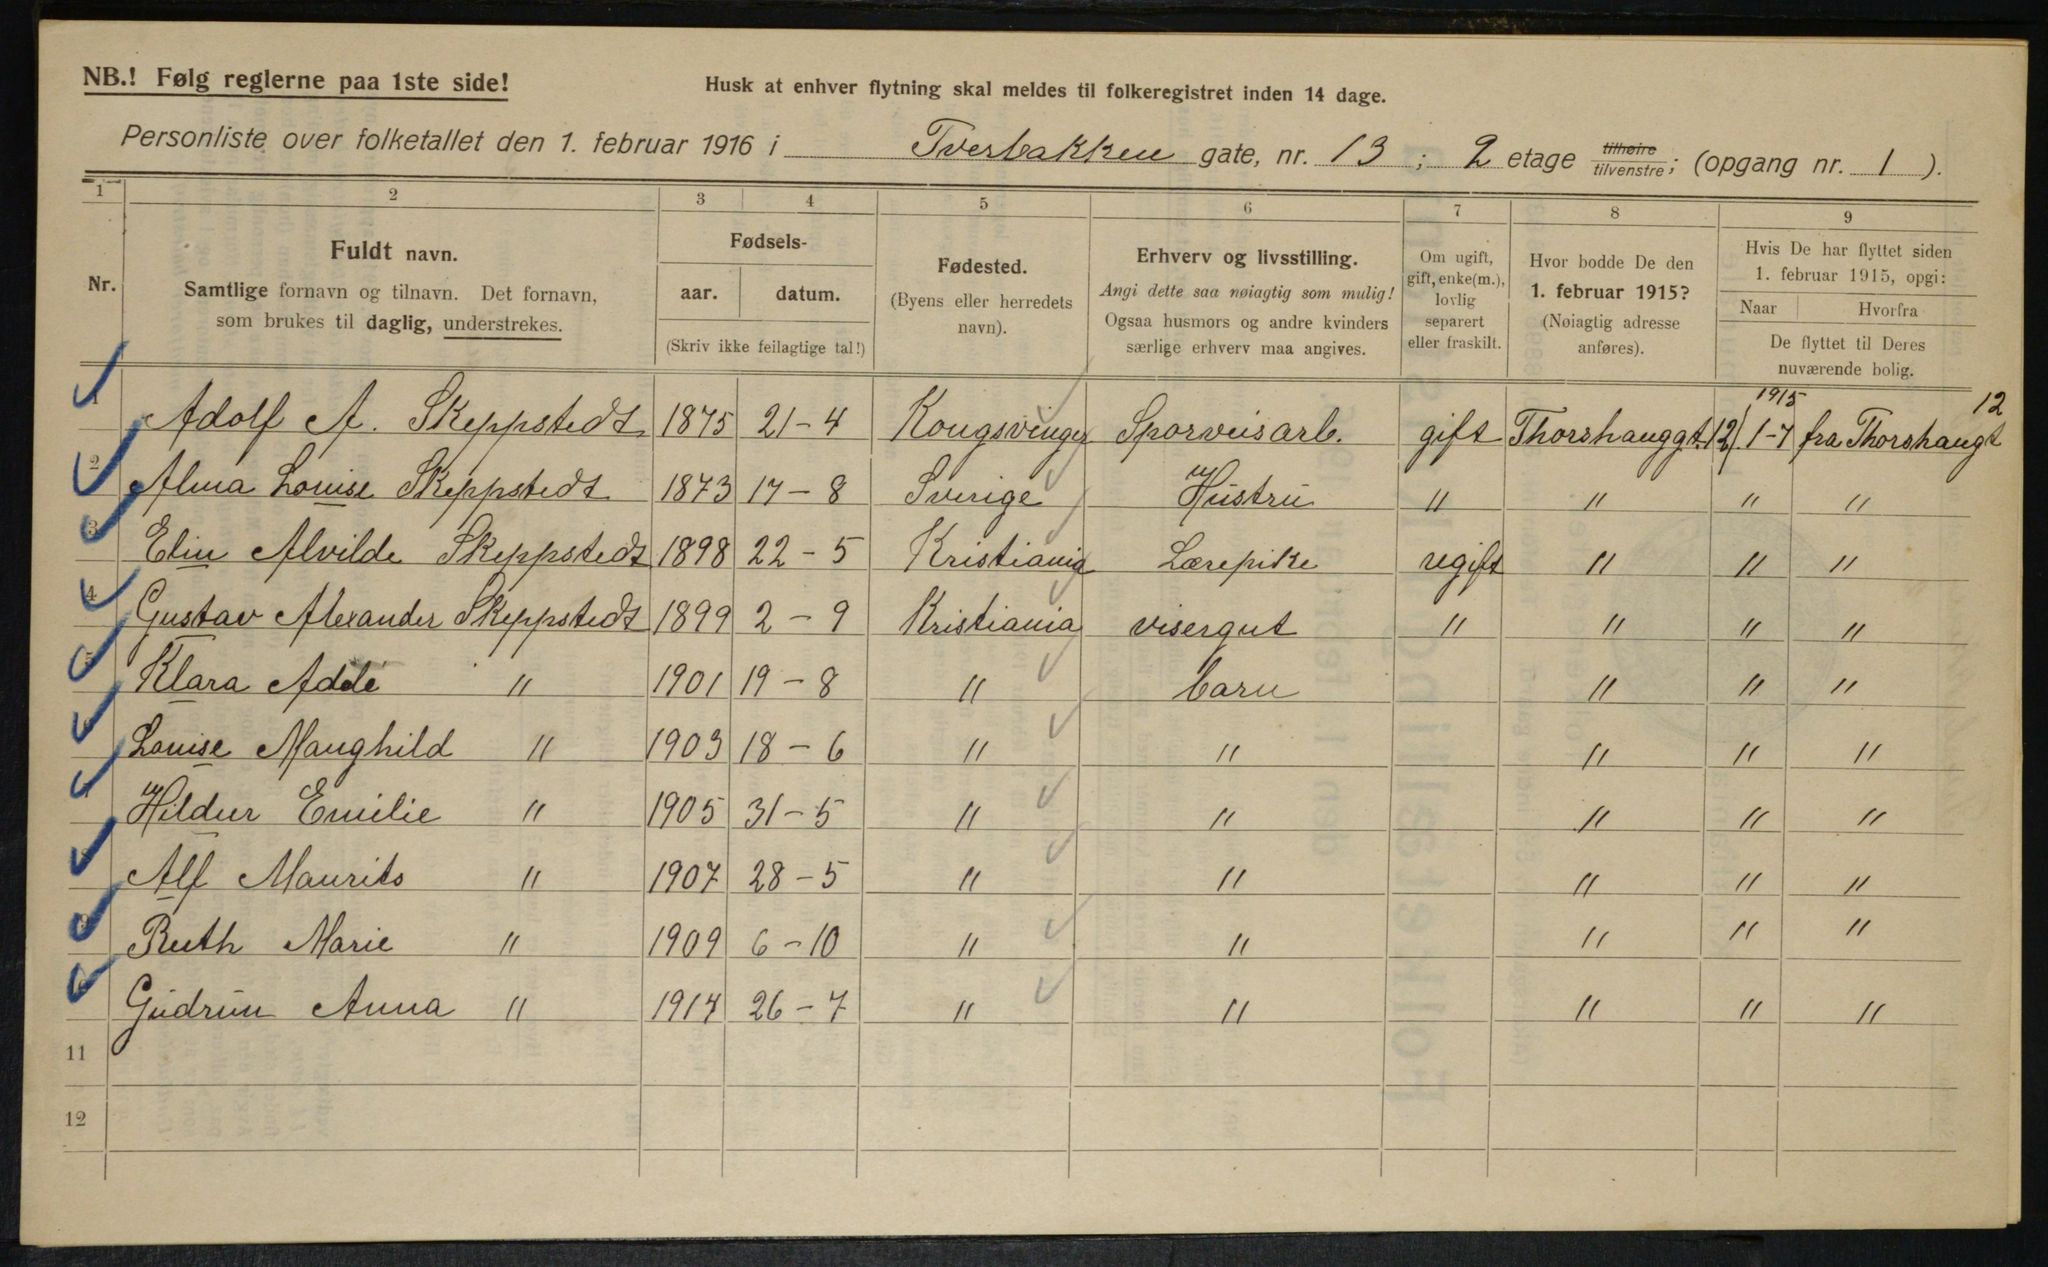 NB.! Følg reglerne paa 1ste side!
Husk at enhver flytning skal meldes til folkeregistret inden 14 dage.
Personliste over folketallet den 1. februar 1916 i Tverbakken gate, nr. 13 ; 2 etage tilhøire/tilvenstre; (opgang nr. 1 ).
1 2 3 4 5 6 7 8 9
Nr.
Fuldt navn.
Samtlige fornavn og tilnavn. Det fornavn,
som brukes til daglig, understrekes.
Fødsels-
aar. datum.
(Skriv ikke feilagtige tal!)
Fødested.
(Byens eller herredets
navn).
Erhverv og livsstilling.
Angi dette saa nøiagtig som mulig!
Ogsaa husmors og andre kvinders
særlige erhverv maa angives.
Om ugift,
gift, enke(m.),
lovlig
separert
eller fraskilt.
Hvor bodde De den
1. februar 1915?
(Nøiagtig adresse
anføres).
Hvis De har flyttet siden
1. februar 1915, opgi:
Naar Hvorfra
De flyttet til Deres
nuværende bolig.
1 Adolf A. Skeppstedt 1875 21-4 Kongsvinger Sporveisarb. gift Thorshauggt. 12 1915 1-7 fra Thorshaugt 12
2 Alma Louise Skeppstedt 1873 17-8 Sverige Hustru " " " "
3 Elin Alvilde Skeppstedt 1898 22-5 Kristiania Lærepike ugift " " "
4 Gustav Alexander Skeppstedt 1899 2-9 Kristiania visergut " " " "
5 Klara Adele " 1901 19-8 " barn " " "
Louise Maughild " 1903 18-6 " " " " "
Hildur Emilie " 1905 31-5 " " " " "
Alf Maurits " 1907 28-5 " " " " "
9 Ruth Marie " 1909 6-10 " " " " "
Gudrun Anna " 1914 26-7 " " " " "
11
12